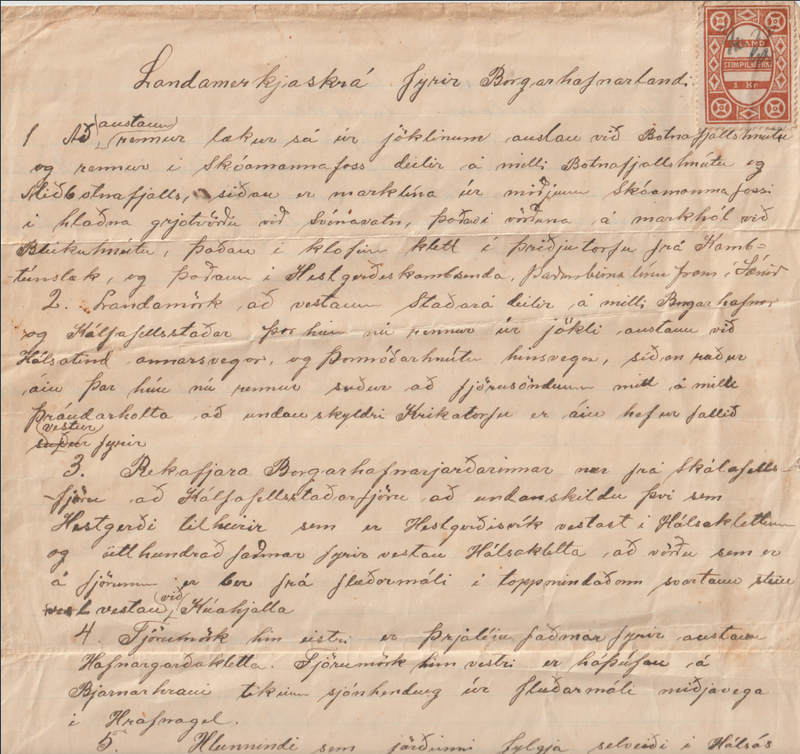 ÍSLAND
STIMPILMERKI
1 Kr
Landamerkjaskrá fyrir Borgarhafnarlandi.
austan
1 Að rennur lækur sá úr jöklinum austan við Botnafjallshnútu
og rennur í Skóamannafoss deilir á milli Botnafjallshnútu og
Miðbotnafjalls, síðan er marklína úr miðjum Skóamannafossi
í hlaðna grjótvörðu við Svínavatn, þaðan í vörðuna á markhól við
Bleikuhnútu, þaðan í klofinn klett í þriðjutorfu frá Kamb-
túnslæk, og þaðan í Hestgerðeskambsenda, línu fram í
2. Landamörk að vestann Staðará deilir á milli Borgarhafnar
og Kálfafellsstaðar þar hun nú rennur úr jökli austan við
Hálsatind annarsvegar, og Þormóðarhnútu hinsvegar, síðan ræður
áin þar hún nú rennur suður að fjörusöndum mitt á milli
Þrándarholta að undan skyldri Krikatorfu er áin hefur fallið
vestur
suður fyrir
3. Rekafjara Borgarhafnarjarðarinnar nær frá Skálafells-
fjöru að Kálfafellsstaðarfjöru að undanskildu því sem
Hestgerði tilheirir sem er Hestgerðisvík vestast í Hálsaklettum
og átt hundrað faðmar fyrir vestan Hálsakletta að vörðu sem er
á fjörunni er ber frá flæðarmáli í toppmindaðann svartann stein
við
vestan Kúahjalla
4. Fjörumörk hin eistri er þrjátíu faðmar fyrir austann
Hafnargarðakletta. Fjörumörk hin vestri er háþúfan á
Bjarnarhrauni tekinn sjónhending úr flæðarmáli miðjavega
í Hrafnagel.
5. Hlunnindi sem jörðinni fylgja selveiði í Hálsós